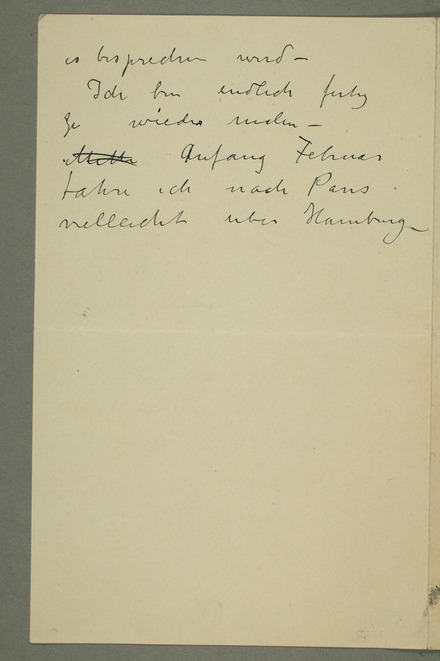 es besprechen wird –
Ich bin endlich fertig
zu wieder malen –
Anfang Februar
fahre ich nach Paris
vielleicht uber Hamburg –